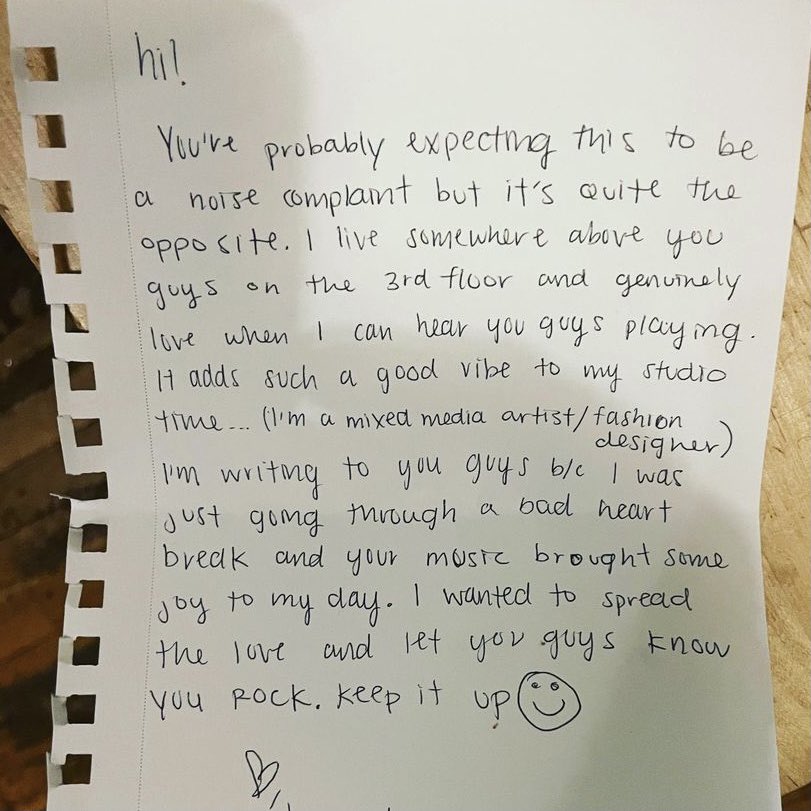 hi!
You're probably expecting this to be
a noise complaint but it's quite the
opposite. I live somewhere above you
guys on the 3rd floor and genuinely
love when I can hear you guys playing.
It adds such a good vibe to my studio
time... (I'm a mixed media artist/fashion
designer)
I'm writing to you guys b/c I was
just going through a bad heart
break and your music brought some
joy to my day. I wanted to spread
the love and let you guys know
you ROCK. keep it up